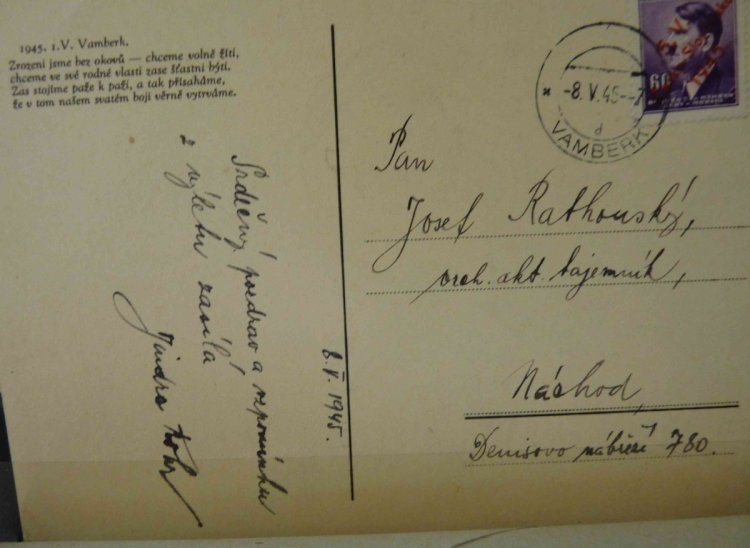 1945. 1.V. Vamberk.
Zrozeni jsme bez okovů — chceme volně žíti,
chceme ve své rodné vlasti zase šťastni býti.
Zas stojíme paže k paži, a tak přísaháme,
že v tom našem svatém boji věrně vytrváme.
Srdečný pozdrav a vzpomínku
z výletu zasílá
Jindra
8.V. 1945.
-8.V.45-7
VAMBERK
d
60
5.V.
1945
Pan
Josef Rathouský,
vrch. akt. tajemník,
Náchod,
Denisovo nábřeží 780.